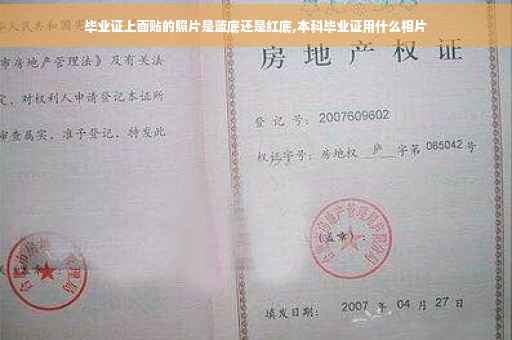 毕业证上面贴的照片是蓝底还是红底,本科毕业证用什么相片
人民共和国宪
市房地产管理法》及有关法
定，对权利人申请登记本证所
审查属实，准予登记，特发此
房地产权证
登记号：2007609602
权证字号：房地权 庐 字第 065042 号
(盖章)：
填发日期： 2007 年 04 月 27 日